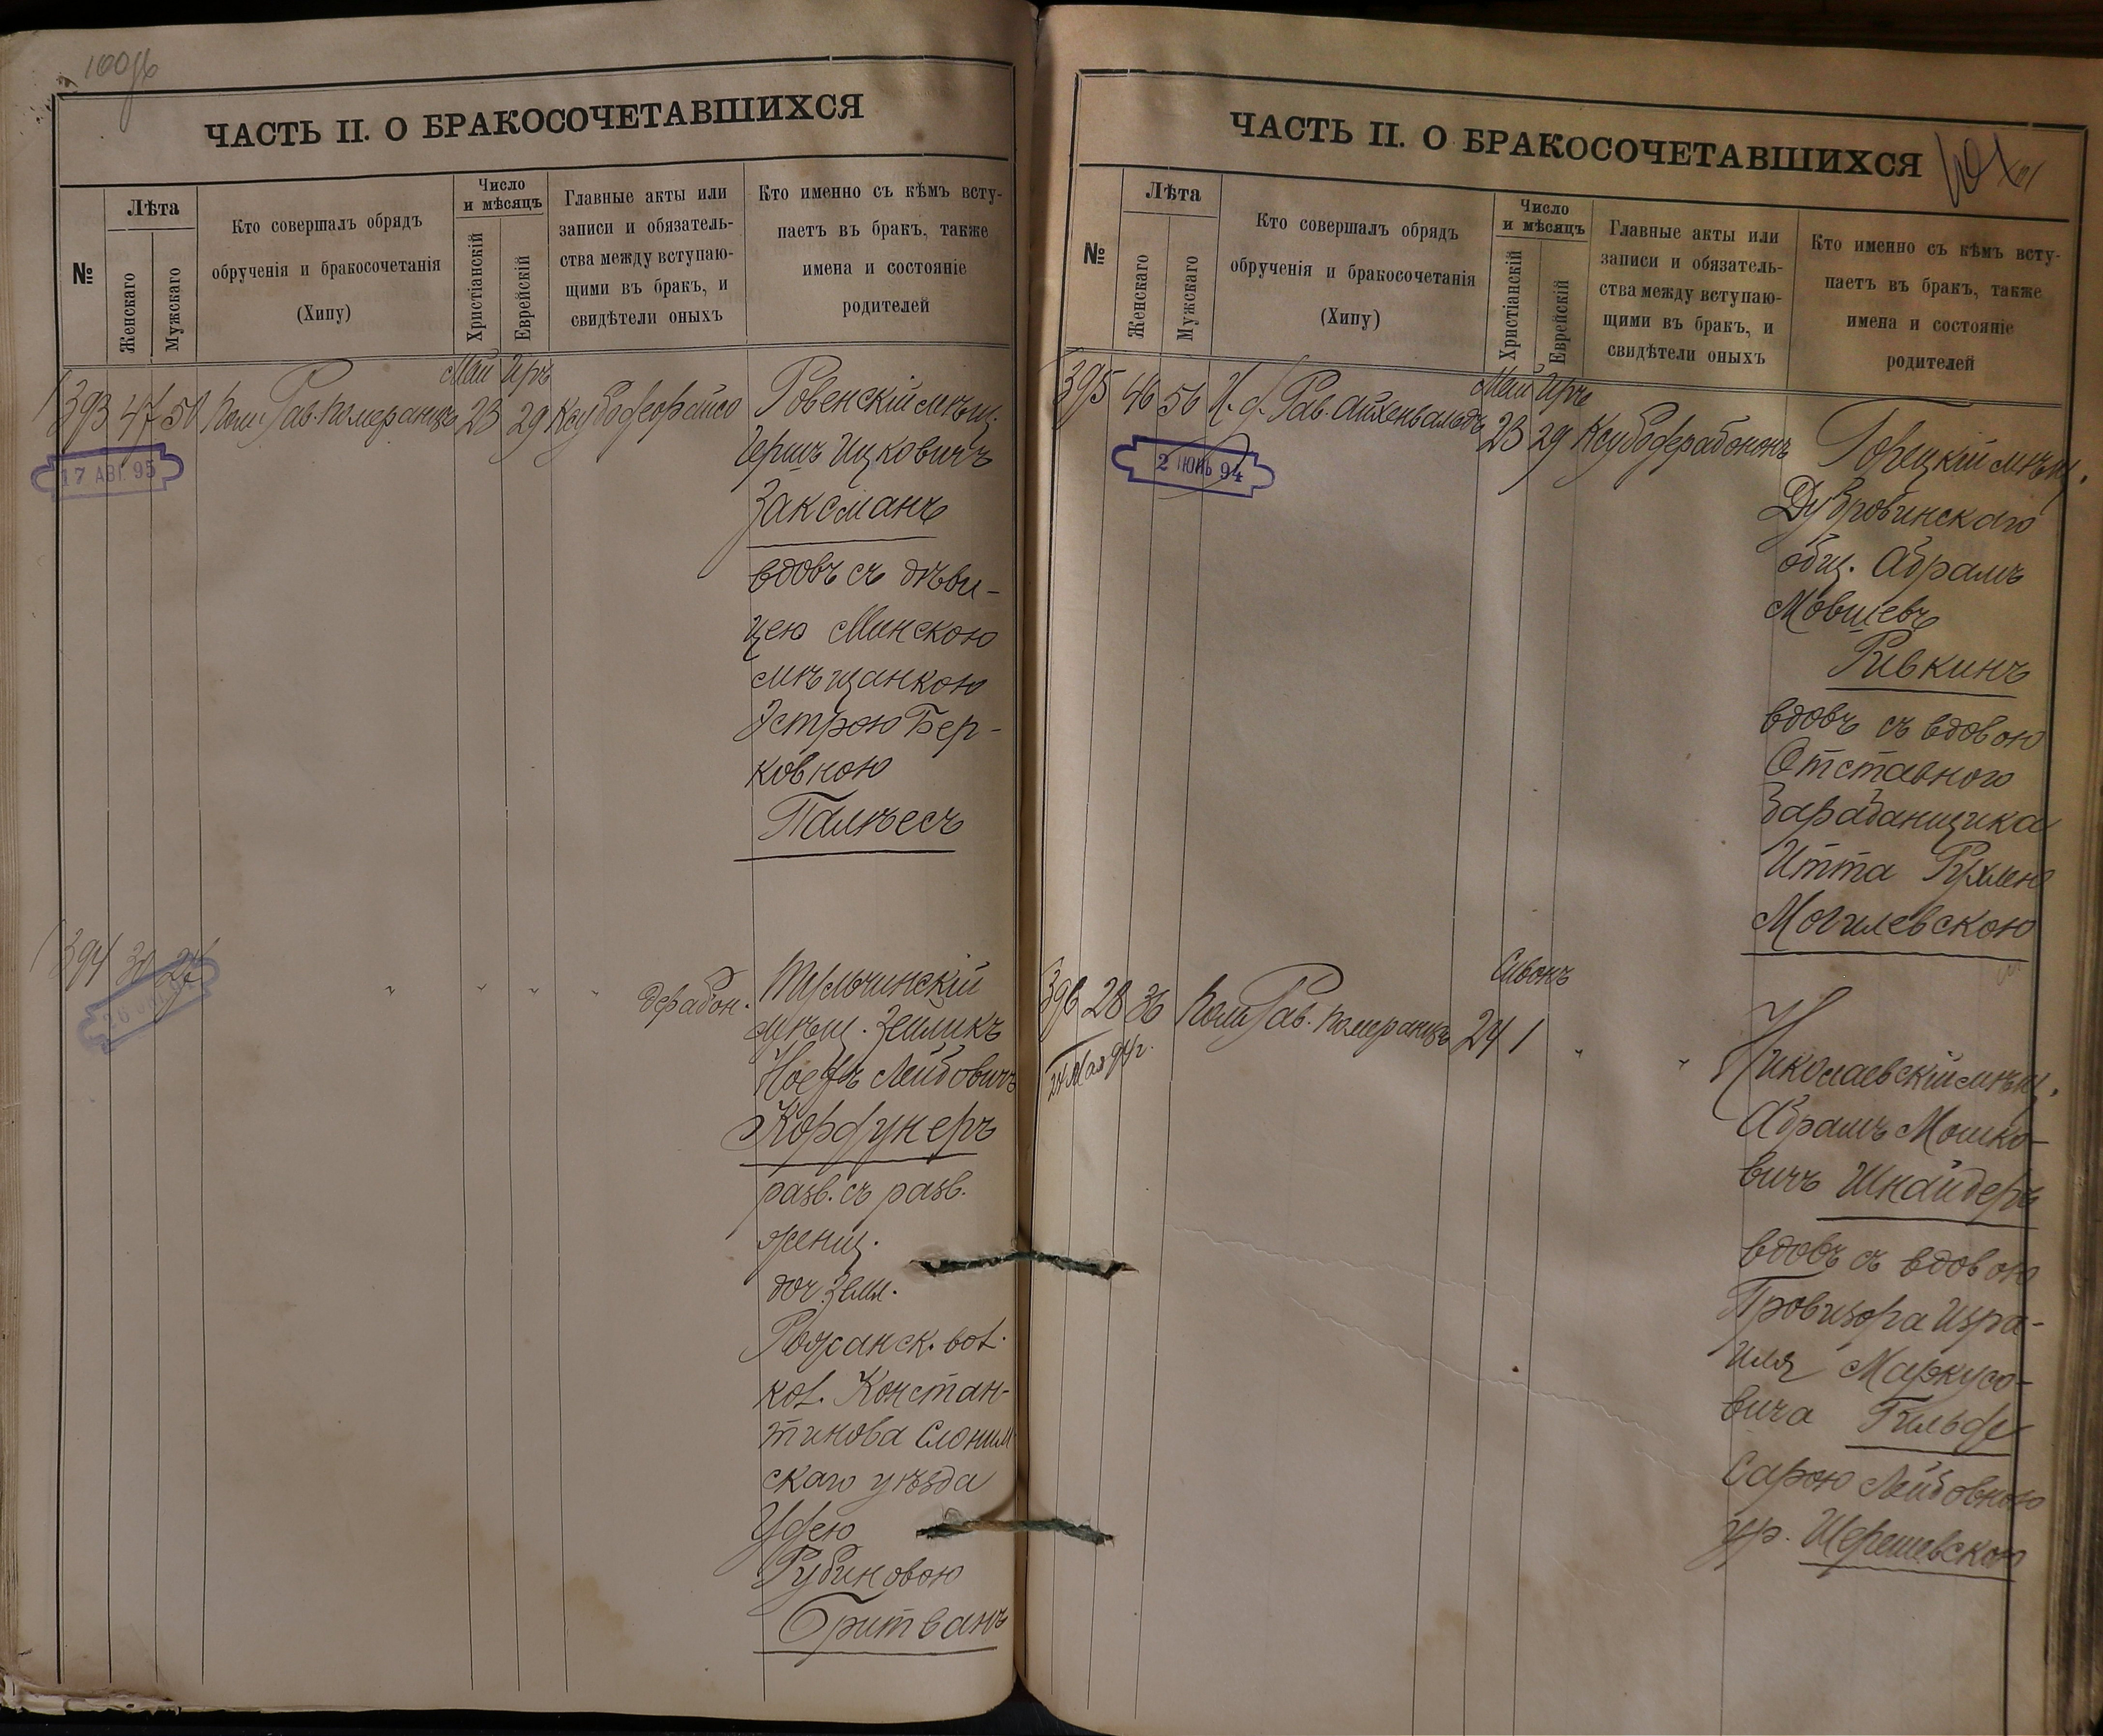 100об
ЧАСТЬ II. О БРАКОСОЧЕТАВШИХСЯ
№
Лѣта
Женскаго
Мужскаго
Кто совершалъ обрядъ
обрученія и бракосочетанія
(Хипу)
Число
и мѣсяцъ
Христіанскій
Еврейскій
Главные акты или
записи и обязатель-
ства между вступаю-
щими въ бракъ, и
свидѣтели оныхъ
Кто именно съ кѣмъ всту-
паетъ въ бракъ, также
имена и состояніе
родителей
Май Иръ
393 47 50 Пом. Рав. Померанцъ 23 29
17 АВГ. 95
Ровенскій мѣщ.
Гершъ Ицковичъ
Заксманъ
вдовъ съ дѣви-
цею Минскою
мѣщанкою
Эстрою Бер-
ковною
Палѣесъ
394 30 27 " " " " " дерабон.
Тульчинскій
мѣщ. Зейликъ
Лейбовичъ
Корфунеръ
разв. съ разв.
женщ.
доч. Земл.
Рожанск. вол.
кол. Констан-
тинова Слоним
скаго уѣзда
Рубиновою
Бритванъ
ЧАСТЬ II. О БРАКОСОЧЕТАВШИХСЯ
101
№
Лѣта
Женскаго
Мужскаго
Кто совершалъ обрядъ
обрученія и бракосочетанія
(Хипу)
Число
и мѣсяцъ
Христіанскій
Еврейскій
Главные акты или
записи и обязатель-
ства между вступаю-
щими въ бракъ, и
свидѣтели оныхъ
Кто именно съ кѣмъ всту-
паетъ въ бракъ, также
имена и состояніе
родителей
Май Иръ
395 46 56 И. д. Рав. Айхенвальдъ 23 29 Ксубодерабононъ
2 ІЮНЬ 94
Горецкій мѣщ.
Дубровинскаго
общ. Абрамъ
Мовшевъ
Ривкинъ
вдовъ съ вдовою
Отставного
Барабанщика
Итта Рухлею
Могилевскою
Сивонъ
396 28 36 Пом. Рав. Померанцъ 24 1 " "
24 Мая 94 г.
Николаевскій мѣщ.
Абрамъ Мошко-
вичъ Шнайдеръ
вдовъ съ вдовою
Провизора Изра-
иля Маркусо-
вича Гильде
Сарою Лейбовною
ур. Шерешевскою